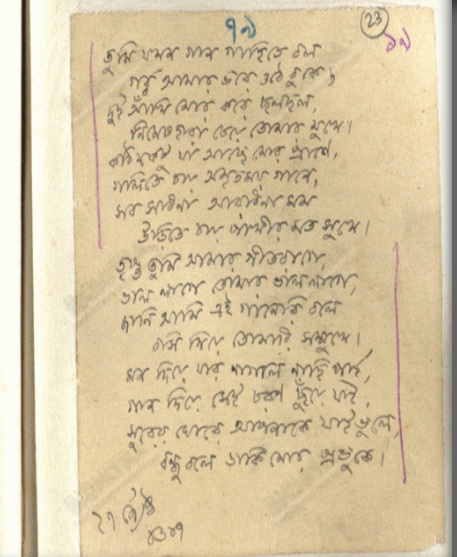 ৭৯
23
৯৯
তুমি যখন গান গাহিতে বল
গর্ব্ব আমার ভরে ওঠে বুকে;
দুই আঁখি মোর করে ছলছল,
নিমেষহারা চেয়ে তোমার মুখে।
কঠিন কটু যা আছে মোর প্রাণে,
গলিতে চায় অমৃতময় গানে,
সব সাধনা আরাধনা মম
উড়িতে চায় পাখীর মত সুখে।
তৃপ্ত তুমি আমার গীতরাগে,
ভাল লাগে তোমার ভাল লাগে,
জানি আমি এই গানেরি বলে
বসি গিয়ে তোমারি সম্মুখে।
মন দিয়ে যার নাগাল নাহি পাই,
গান দিয়ে সেই চরণ ছুঁয়ে যাই,
সুরের ঘোরে আপনাকে যাই ভুলে,
বন্ধু বলে ডাকি মোর প্রভুকে।
২৭ জ্যৈষ্ঠ
১৩১৭